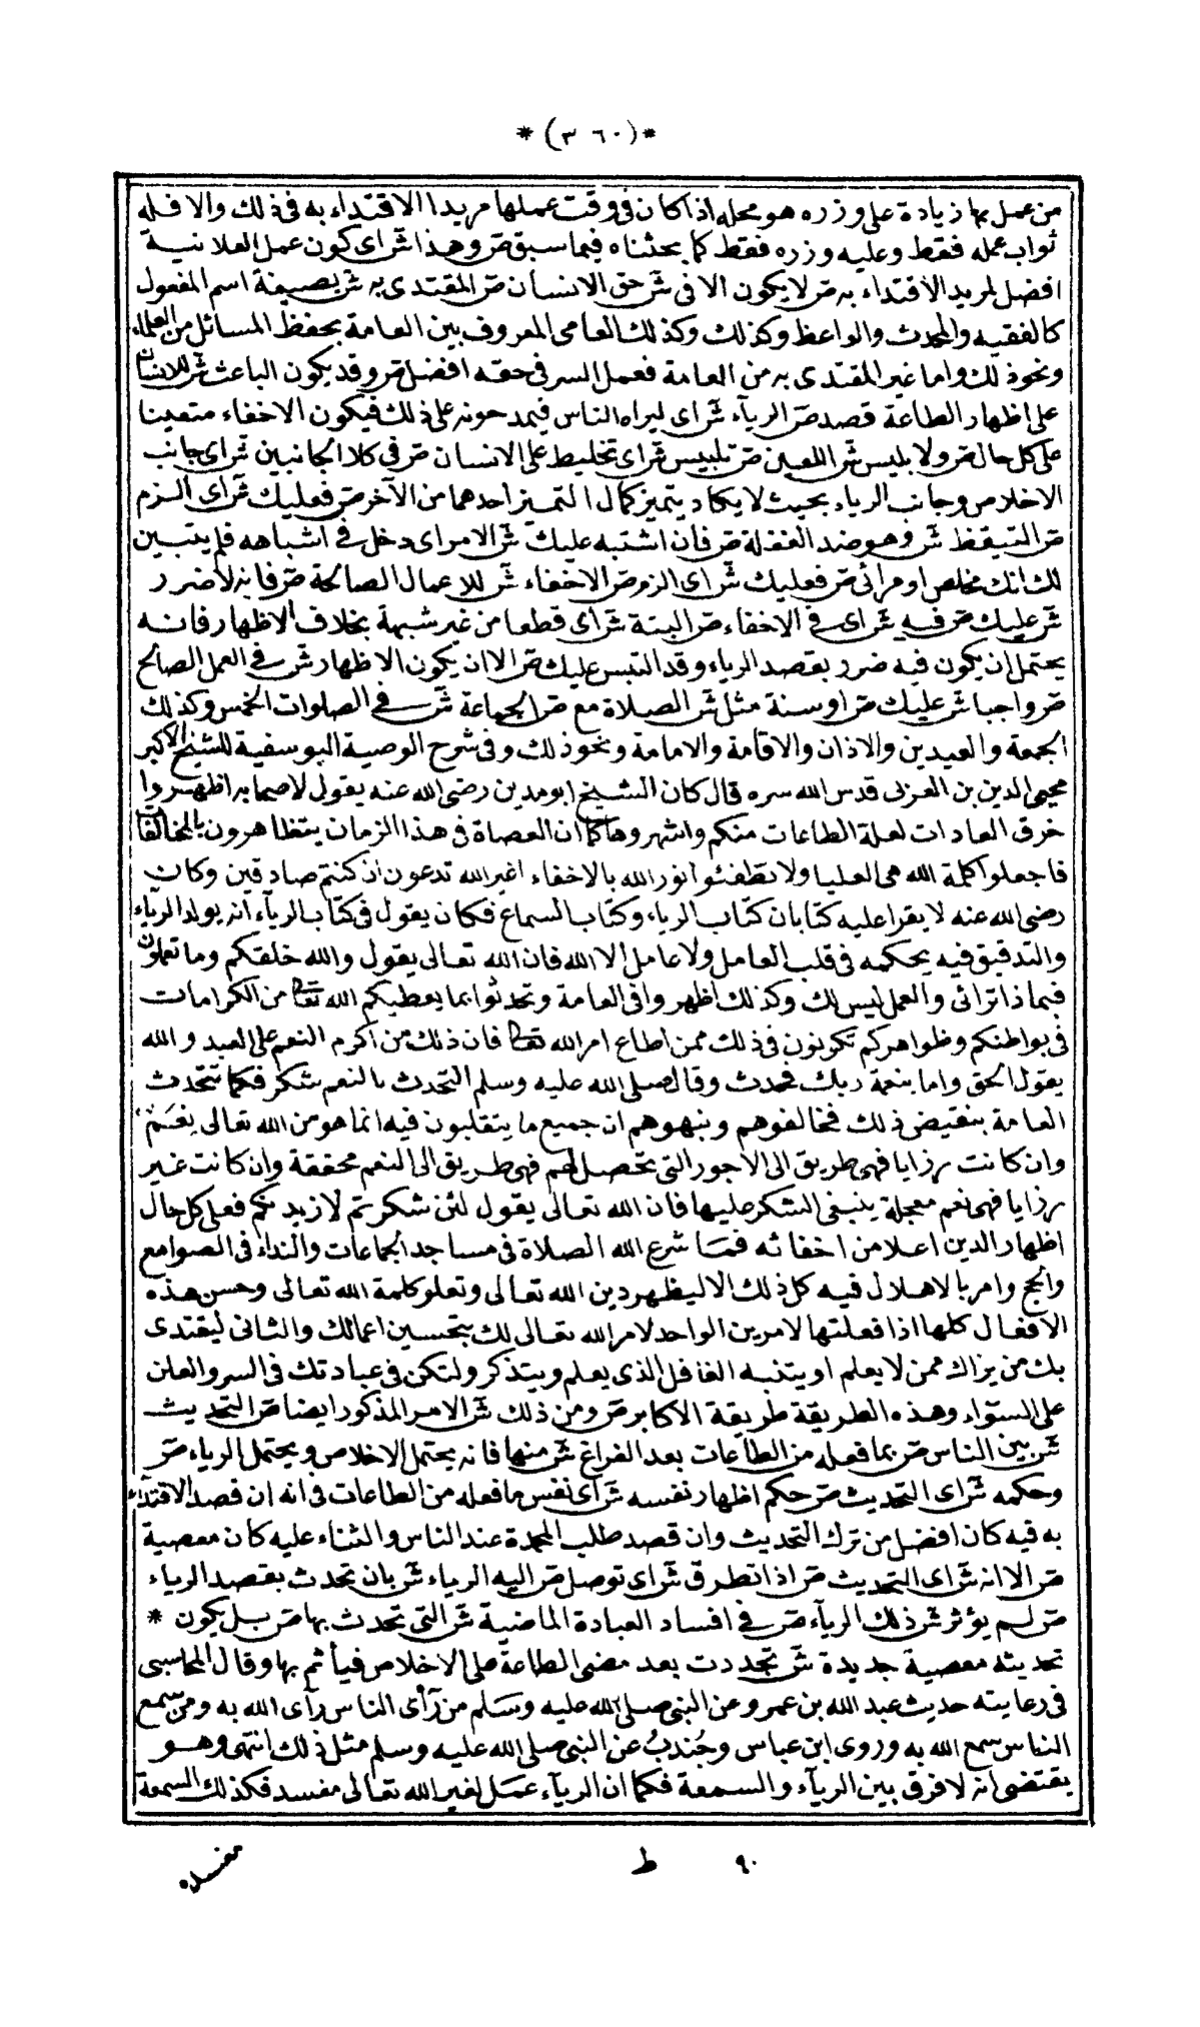 *(٣٦٠)*
من عمل بها زيادة على وزره هو محله اذا كان فى وقت عملها مريدا الاقتداء به فى ذلك والا فله
ثواب عمله فقط وعليه وزره فقط كما بحثناه فيما سبق ص وهذا ش اى كون عمل العلانية
افضل لمريد الاقتداء به ص لا يكون الا فى ش حق الانسان ص المقتدى به ش بصيغة اسم المفعول
كالفقيه والمحدث والواعظ وكذلك وكذلك العامى المعروف بين العامة بحفظ المسائل من العلماء
ونحو ذلك واما غير المقتدى به من العامة فعمل السر فى حقه افضل ص وقد يكون الباعث ش للانسان
على اظهار الطاعة قصد ص الريآء ش اى ليراه الناس فيمدحونه على ذلك فيكون الاخفاء متعينا
على كل حال ص ولابليس ش اللعين ص تلبيس ش اى تخليط على الانسان ص فى كلا الجانبين ش اى جانب
الاخلاص وجانب الرياء بحيث لا يكاد يتميز كمال التميز احدهما من الآخر ص فعليك ش اى الزم
ص التيقظ ش وهو ضد الغفلة ص فان اشتبه عليك ش الامر اى دخل فى اشباهه فلم يتبين
لك انك مخلص او مرائى ص فعليك ش اى الزم ص الاخفاء ش للاعمال الصالحة ص فانه لا ضرر
ش عليك ص فيه ش اى فى الاخفاء ص البتة ش اى قطعا من غير شبهة بخلاف الاظهار فانه
يحتمل ان يكون فيه ضرر بقصد الرياء وقد التبس عليك ص الا ان يكون الاظهار ش فى العمل الصالح
ص واجبا ش عليك ص او سنة مثل ش الصلاة مع ص الجماعة ش فى الصلوات الخمس وكذلك
الجمعة والعيدين والاذان والاقامة والامامة ونحو ذلك وفى شرح الوصية اليوسفية للشيخ الاكبر
محيى الدين بن العربى قدس الله سره قال كان الشيخ ابو مدين رضى الله عنه يقول لاصحابه اظهروا
خرق العادات لعلة الطاعات منكم واشهروها كما ان العصاة فى هذا الزمان يتظاهرون بالمخالفات
فاجعلوا كلمة الله هى العليا ولا تطفئوا نور الله بالاخفاء اغير الله تدعون ان كنتم صادقين وكان
رضى الله عنه لا يقرا عليه كتابان كتاب الرياء وكتاب السماع فكان يقول فى كتاب الريآء انه يولد الرياء
والتدقيق فيه يحكمه فى قلب العامل ولا عامل الا الله فان الله تعالى يقول والله خلقكم وما تعملون
فبماذا ترائى والعمل ليس لك وكذلك اظهروا فى العامة وتحدثوا بما يعطيكم الله تعالى من الكرامات
فى بواطنكم وظواهركم تكونون فى ذلك ممن اطاع امر الله تعالى فان ذلك من اكرم النعم على العبد والله
يقول الحق واما بنعمة ربك فحدث وقال صلى الله عليه وسلم التحدث بالنعم شكر فكما تتحدث
العامة بنقيض ذلك فخالفوهم ونبهوهم ان جميع ما يتقلبون فيه انما هو من الله تعالى نِعَمٌ
وان كانت رزايا فهى طريق الى الاجور التى تحصل لهم فهى طريق الى النعم محققة وان كانت غير
رزايا فهى نعم معجلة ينبغى الشكر عليها فان الله تعالى يقول لئن شكرتم لازيدنكم فعلى كل حال
اظهار الدين اعلا من اخفائه فما شرع الله الصلاة فى مساجد الجماعات والنداء فى الصوامع
والحج وامر بالاهلال فيه كل ذلك الا ليظهر دين الله تعالى وتعلو كلمة الله تعالى وحسن هذه
الافعال كلها اذا فعلتها لامرين الواحد لامر الله تعالى لك بتحسين اعمالك والثانى ليقتدى
بك من يراك ممن لا يعلم او يتنبه الغافل الذى يعلم ويتذكر ولتكن فى عبادتك فى السر والعلن
على السوآء وهذه الطريقة طريقة الاكابر ص ومن ذلك ش الامر المذكور ايضا ص التحديث
ش بين الناس ص بما فعله من الطاعات بعد الفراغ ش منها فانه يحتمل الاخلاص ويحتمل الرياء ص
وحكمه ش اى التحديث ص حكم اظهار نفسه ش اى نفس ما فعله من الطاعات فى انه ان قصد الاقتداء
به فيه كان افضل من ترك التحديث وان قصد طلب المحمدة عند الناس والثناء عليه كان معصية
ص الا انه ش اى التحديث ص اذا تطرق ش اى توصل ص اليه الرياء ش بان تحدث بقصد الرياء
ص لم يؤثر ش ذلك الريآء ص فى افساد العبادة الماضية ش التى تحدث بها ص بل يكون *
تحديثه معصية جديدة ش تجددت بعد مضى الطاعة على الاخلاص فيأثم بها وقال المحاسبى
فى رعايته حديث عبد الله بن عمرو عن النبى صلى الله عليه وسلم من رآى الناس رآى الله به ومن سمع
الناس سمع الله به وروى ابن عباس وجُندبُ عن النبى صلى الله عليه وسلم مثل ذلك انتهى وهو
يقتضى انه لا فرق بين الريآء والسمعة فكما ان الريآء عمل لغير الله تعالى مفسد فكذلك السمعة
٩٠ ط مفسده